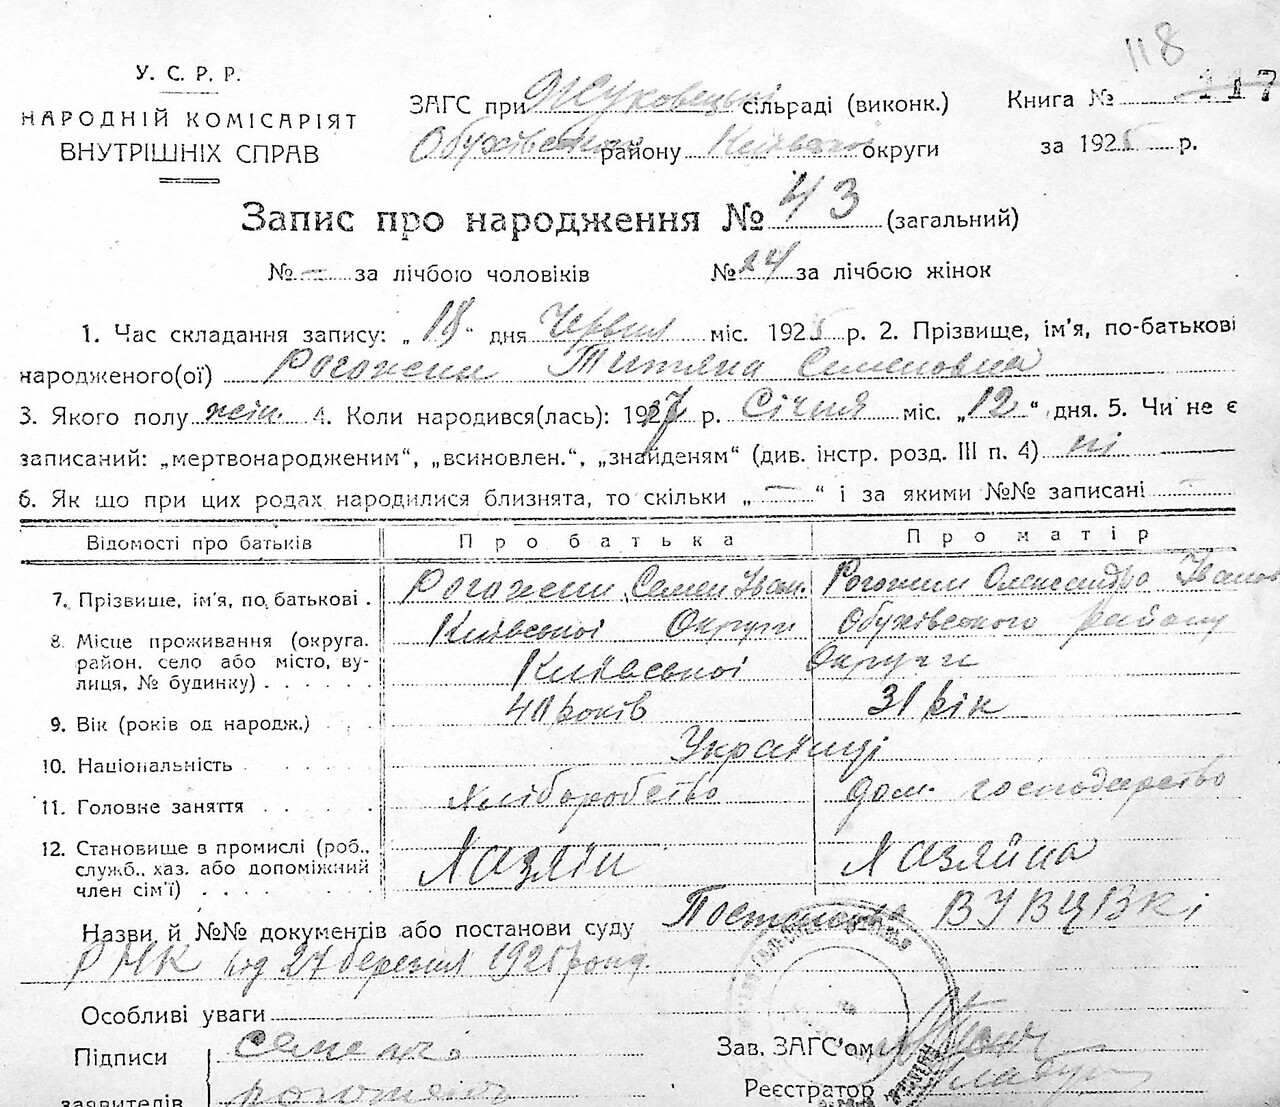 118
У. С. Р. Р.
НАРОДНІЙ КОМІСАРІЯТ
ВНУТРІШНІХ СПРАВ
ЗАГС при Жуковецькі сільраді (виконк.) Книга № 117
Обухівського району Київської округи за 1925 р.
Запис про народження № 43 (загальний)
№ — за лічбою чоловіків № 24 за лічбою жінок
1. Час складання запису: „ 18 “ дня Червня міс. 1925 р. 2. Прізвище, ім’я, по-батькові
народженого(ої) Рогожени Титяна Семеновна
3. Якого полу жін. 4. Коли народився(лась): 1917 р. Січня міс. „ 12 “ дня. 5. Чи не є
записаний: „мертвонародженим“, „всиновлен.“, „знайденям“ (див. інстр. розд. III п. 4) ні
6. Як що при цих родах народилися близнята, то скільки „ — “ і за якими №№ записані —
Відомості про батьків Про батька Про матір
7. Прізвище, ім’я, по, батькові . Рогожени Семен Іван. Рогожини Олександро Іванов
8 Місце проживання (округа. Київської Округи Обухівського району
район. село або місто, ву- Київської Округи
лиця, № будинку) . . . . . .
9. Вік (років од народж.) . . . 40 років 31 рік
10. Національність . . . . . Українці
11. Головне заняття . . . . . Хліборобство дом. господарство
12. Становище в промислі (роб.,
служб., хаз. або допоміжний Хазяїн Хазяйна
член сім’ї) . . . . . . .
Назви й №№ документів або постанови суду Постанова ВУВЦВК і
РНК від 27 березня 1925 року.
Особливі уваги
Підписи Семен Зав. ЗАГС’ом
заявителів Реєстратор